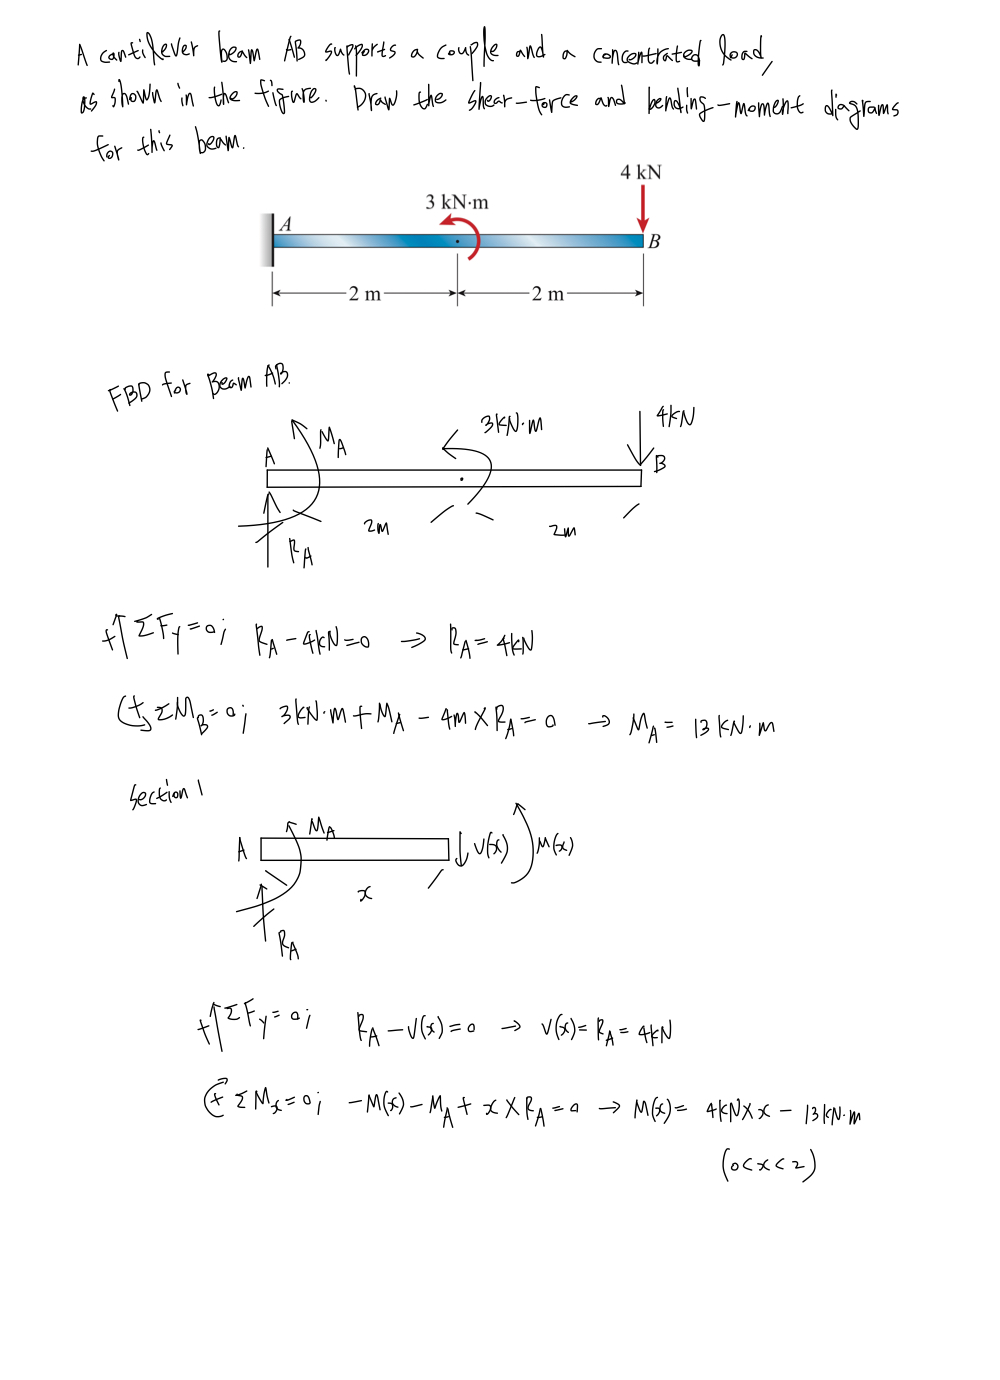 A cantilever beam AB supports a couple and a concentrated load,
as shown in the figure. Draw the shear-force and bending-moment diagrams
for this beam.
4 kN
3 kN·m
A
B
2 m
2 m
FBD for Beam AB.
4kN
3kN·m
M_A
A
B
2m
2m
R_A
+↑ΣF_y=0; R_A-4kN=0 → R_A=4kN
+ΣM_B=0; 3kN·m+M_A-4m×R_A=0 → M_A=13kN·m
Section 1
M_A
A
V(x)
M(x)
x
R_A
+↑ΣF_y=0; R_A-V(x)=0 → V(x)=R_A=4kN
+ΣM_x=0; -M(x)-M_A+x×R_A=0 → M(x)=4kN×x-13kN·m
(0<x<2)